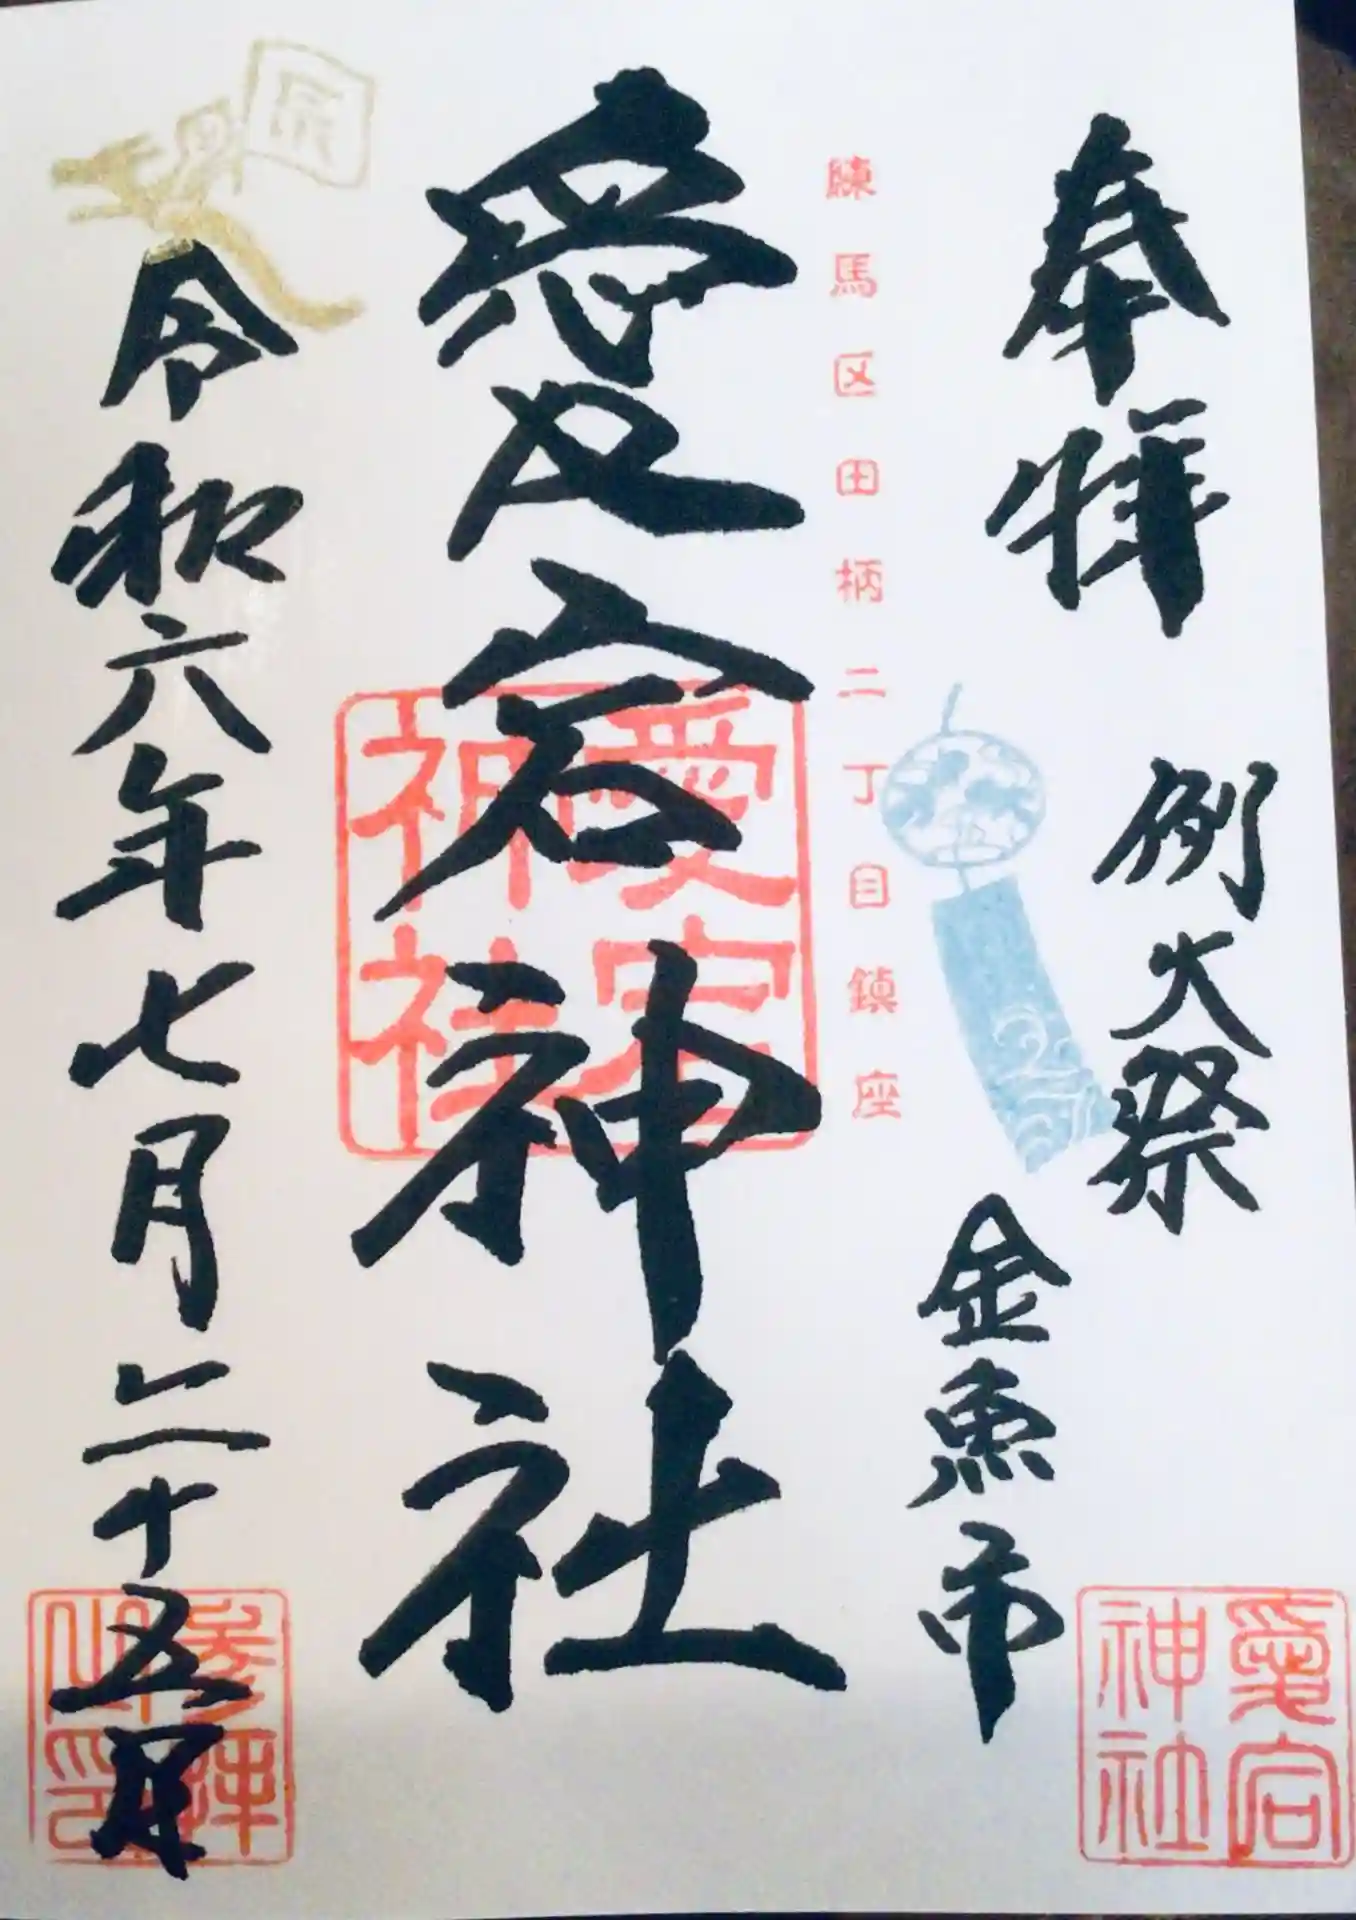 奉拝
例大祭
金魚市
練馬区田柄二丁目鎮座
愛宕神社
愛宕神社
辰
令和六年七月二十五日
参拝
愛宕神社